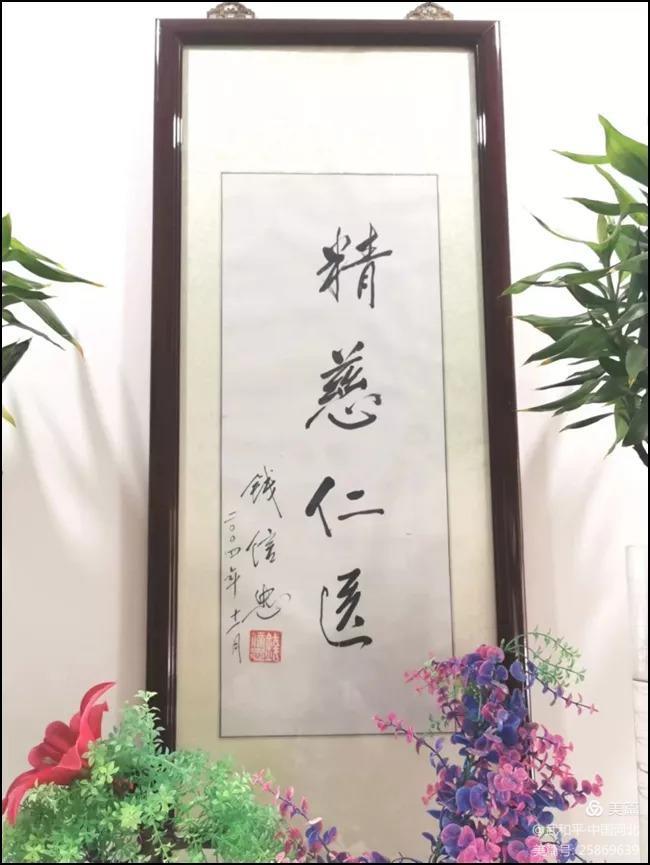 精慈仁医
钱信忠
二〇〇四年十一月
美篇
和平·中国河北
美篇号:25869639